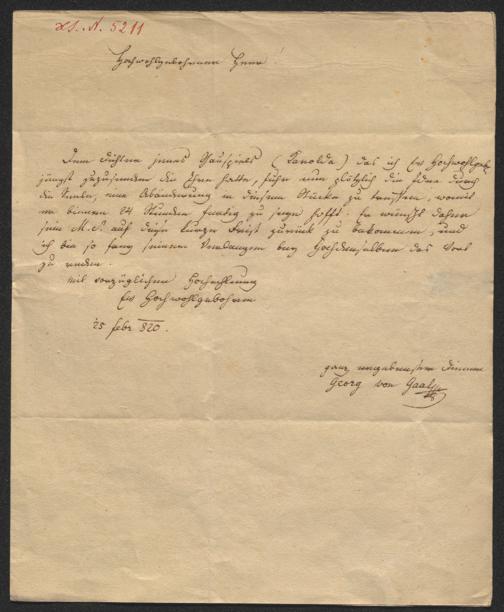 H.S. N. 5211
Hochwohlgebohrner Herr!
Dem Dichter jenes Schauspiels (Isanolda) das ich Ew Hochwohlgeb
jüngst zuzusenden die Ehre hatte, fuhr nun plötzlich die Idee durch
die Seele, eine Abänderung in diesem Stücke zu treffen, womit
er binnen 24 Stunden fertig zu seyn hofft. Er wünscht daher
sein M.S. auf diese kurze Frist zurück zu bekommen, und
ich bin so frey seinem Verlangen bey Hochdenselben das Wort
zu reden.
Mit vorzüglicher Hochachtung
Ew Hochwohlgebohren
25 febr 820.
ganz ergebenster Diener
Georg von Gaal